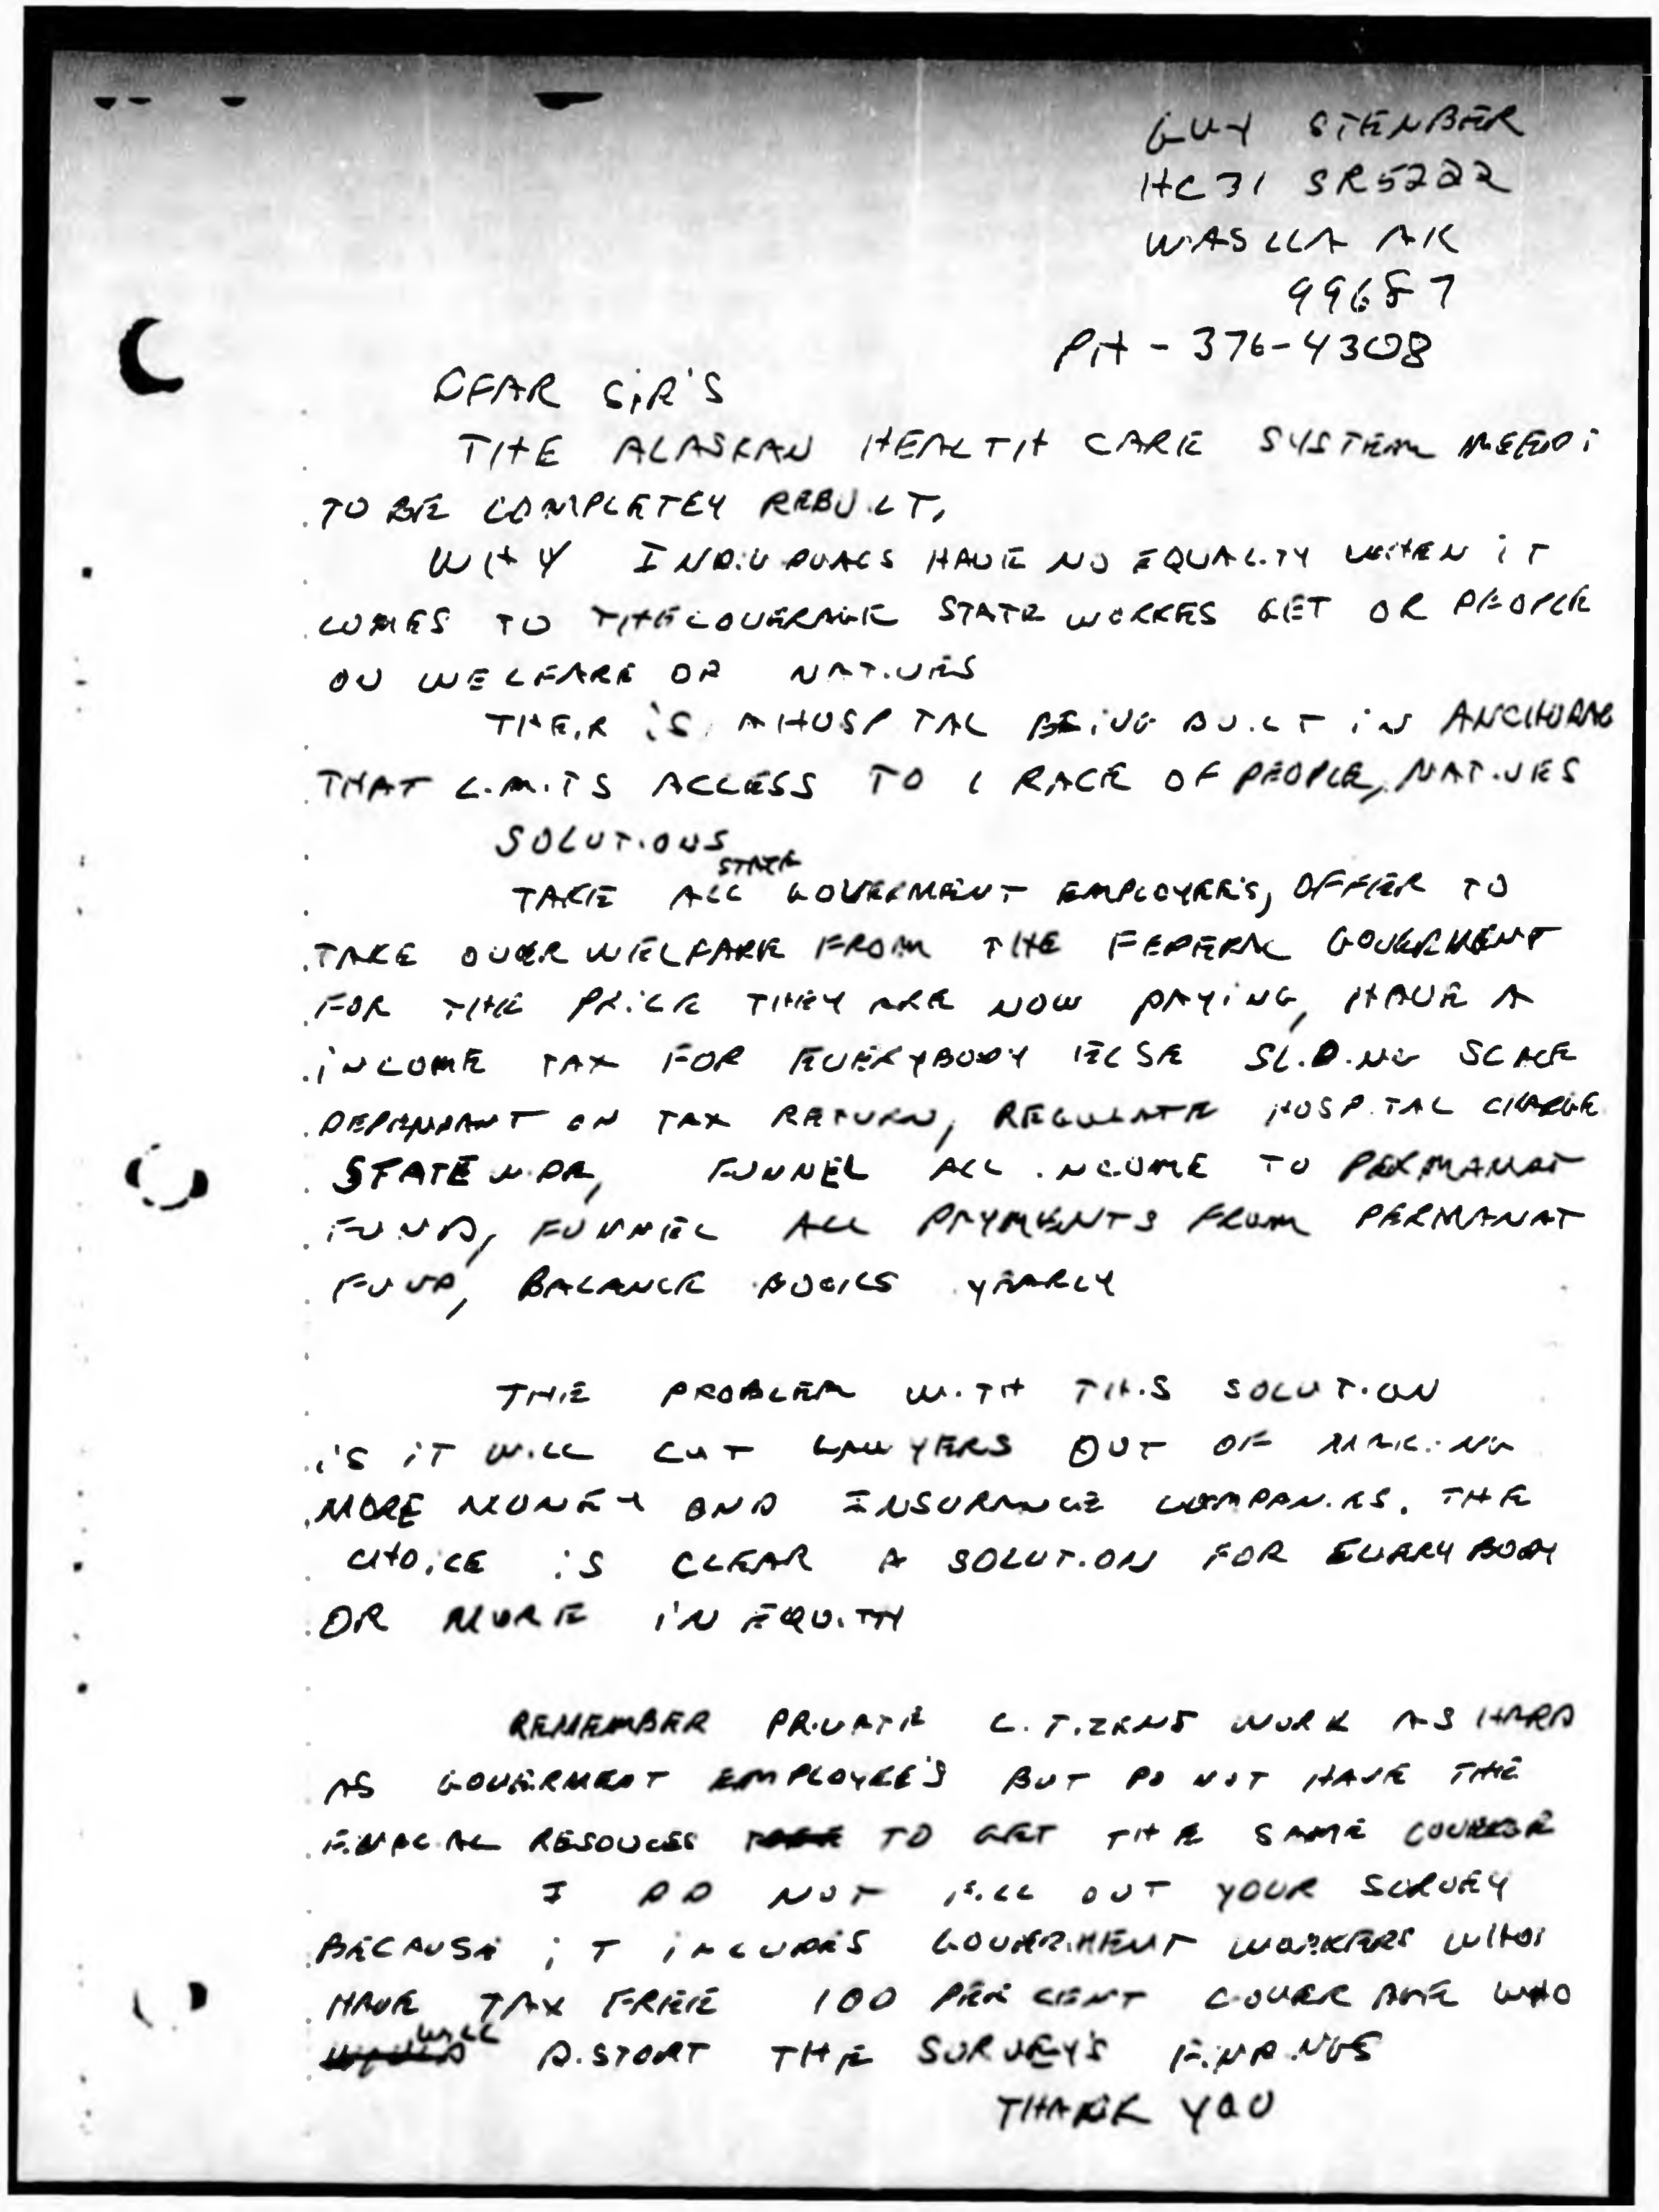 GUY STENBER
HC31 SR5222
WASLLA AK
99687
PH - 376-4308
DEAR SIR'S
THE ALASKAN HEALTH CARE SYSTEM NEEDS
TO BE COMPLETEY REBUILT,
WHY INDIVIDUALS HAVE NO EQUALITY WHEN IT
COMES TO THE COVERAGE STATE WORKES GET OR PEOPLE
ON WELFARE OR NATIVES
THEIR IS A HOSPITAL BEING BUILT IN ANCHORAG
THAT LIMITS ACCESS TO 1 RACE OF PEOPLE, NATIVES
SOLUTIONS
STATE
TAKE ALL GOVERMENT EMPLOYEE'S, OFFER TO
TAKE OVER WELFARE FROM THE FEDERAL GOVERMENT
FOR THE PRICE THEY ARE NOW PAYING, HAVE A
INCOME TAX FOR EVERYBODY ELSE SLIDING SCALE
DEPENDANT ON TAX RETURN, REGULATE HOSPITAL CHARGE
STATE WIDE, FUNNEL ALL INCOME TO PERMANAT
FUND, FUNNEL ALL PAYMENTS FROM PERMANAT
FUND, BALANCE BOOKS YEARLY
THE PROBLEM WITH THIS SOLUTION
IS IT WILL CUT LAWYERS OUT OF MAKING
MORE MONEY AND INSURANCE COMPANIES. THE
CHOICE IS CLEAR A SOLUTION FOR EVERYBODY
OR MORE IN EQUITY
REMEMBER PRIVATE CITIZENS WORK AS HARD
AS GOVERMENT EMPLOYEE'S BUT DO NOT HAVE THE
FINACIAL RESOUCES TO GET THE SAME COVERGE
I DO NOT FILL OUT YOUR SURVEY
BECAUSE IT INCLUDES GOVERMENT WORKERS WHO
HAVE TAX FREE 100 PER CENT COVERAGE WHO
WILL DISTORT THE SURVEY'S FINDINGS
THANK YOU